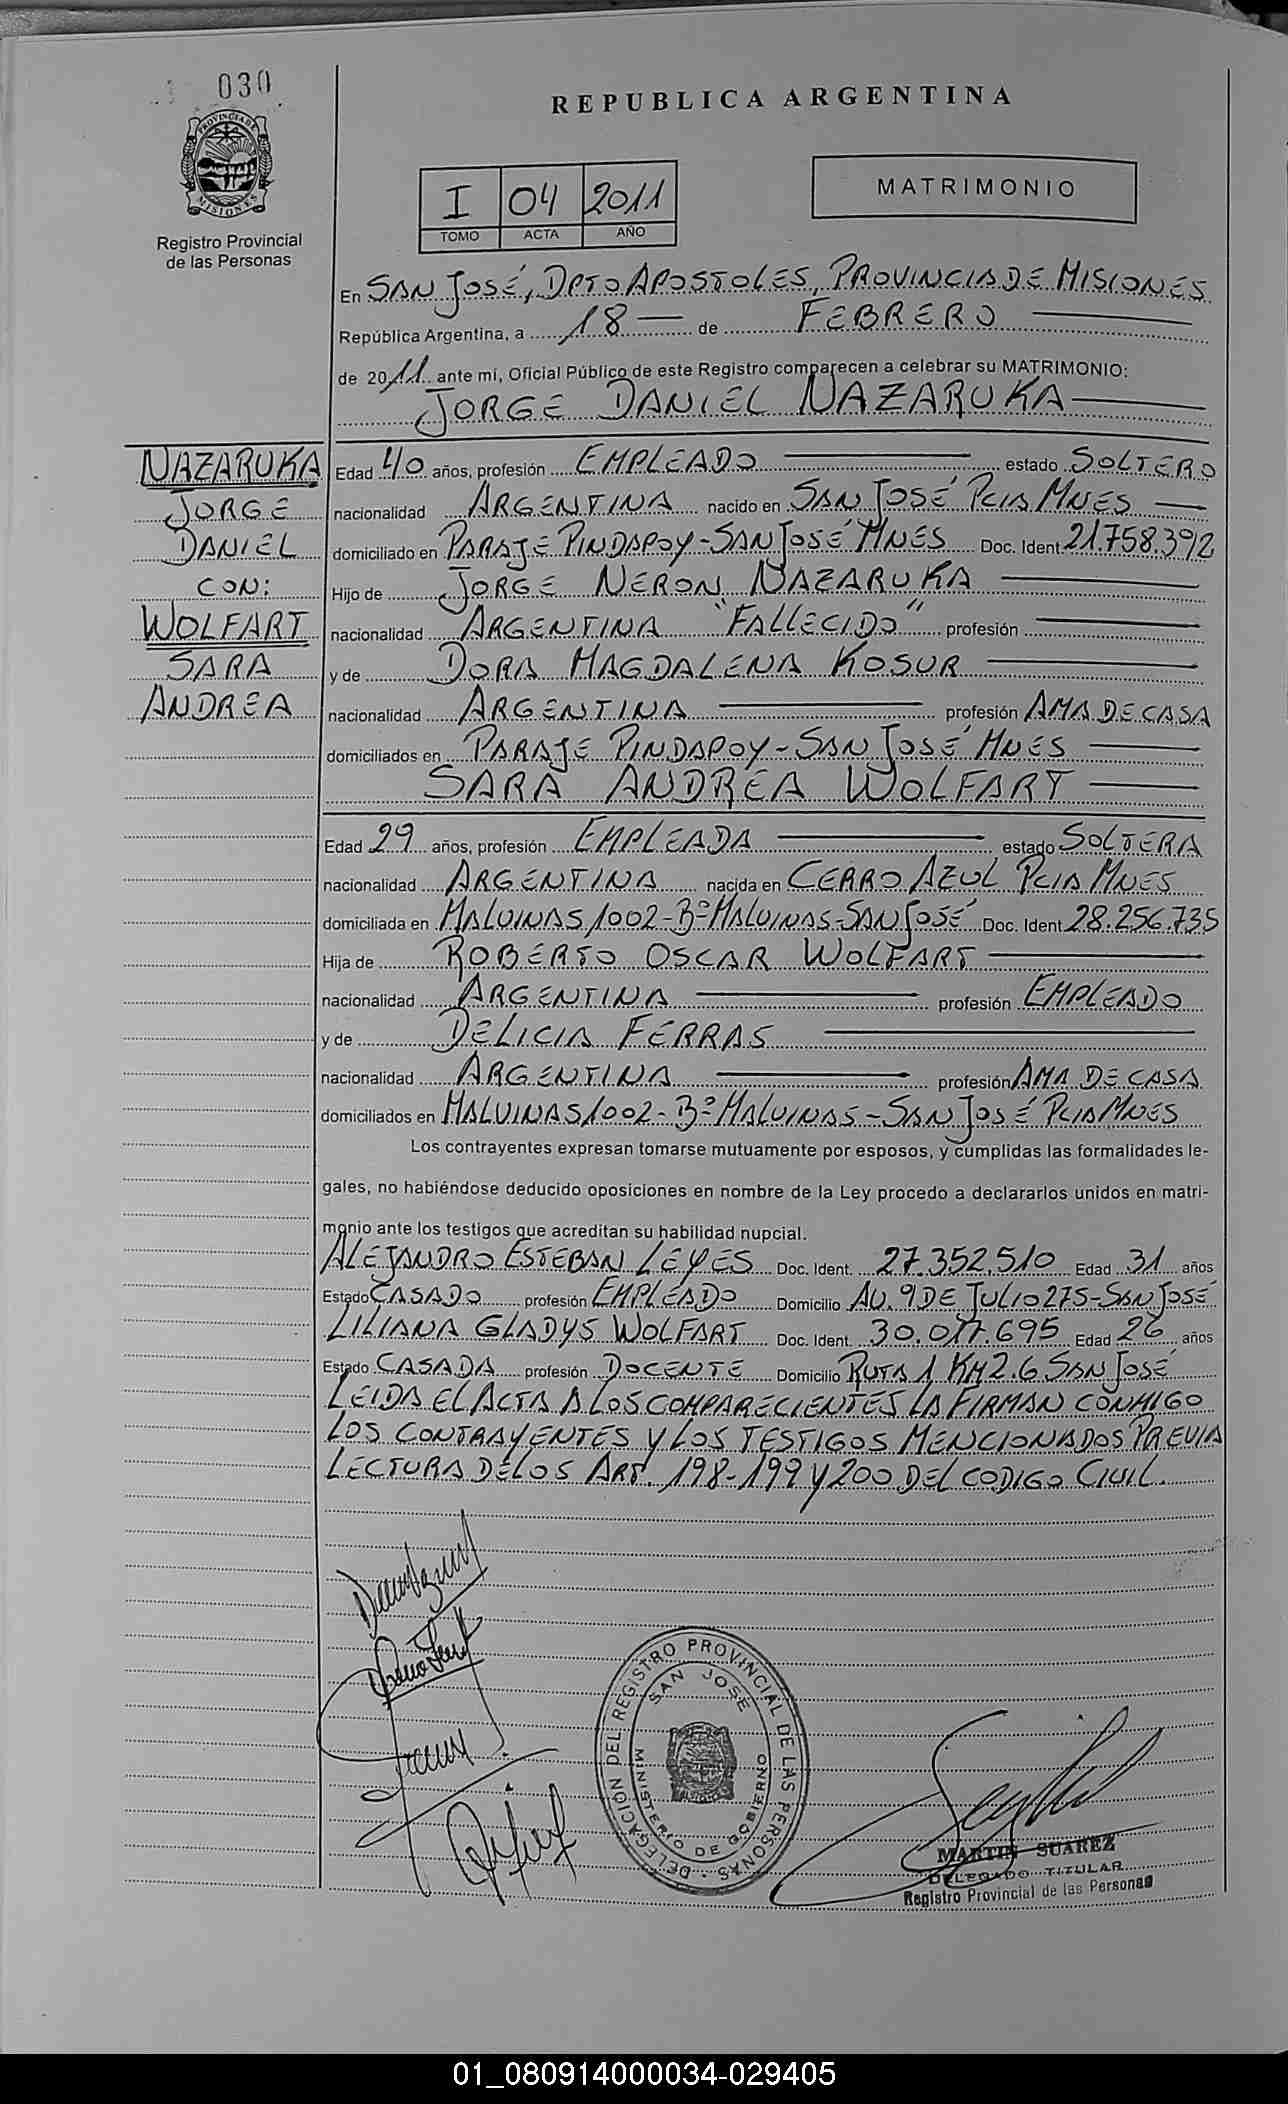 030
PROVINCIA DE
MISIONES
Registro Provincial
de las Personas
REPUBLICA ARGENTINA
I 04 2011
TOMO ACTA AÑO
MATRIMONIO
En SAN JOSÉ, DPTO APOSTOLES, PROVINCIA DE MISIONES
República Argentina, a 18 — de FEBRERO
de 2011 ante mí, Oficial Público de este Registro comparecen a celebrar su MATRIMONIO:
JORGE DANIEL NAZARUKA
NAZARUKA
JORGE
DANIEL
CON:
WOLFART
SARA
ANDREA
Edad 40 años, profesión EMPLEADO estado SOLTERO
nacionalidad ARGENTINA nacido en SAN JOSÉ PCIA MNES
domiciliado en PARAJE PINDAPOY-SAN JOSÉ MNES Doc. Ident. 21.758.392
Hijo de JORGE NERON NAZARUKA
nacionalidad ARGENTINA "FALLECIDO" profesión
y de DORA MAGDALENA KOSUR
nacionalidad ARGENTINA profesión AMA DE CASA
domiciliados en PARAJE PINDAPOY-SAN JOSÉ MNES
SARA ANDREA WOLFART
Edad 29 años, profesión EMPLEADA estado SOLTERA
nacionalidad ARGENTINA nacida en CERRO AZUL PCIA MNES
domiciliada en MALVINAS 1002-Bº MALVINAS-SAN JOSÉ Doc. Ident. 28.256.735
Hija de ROBERTO OSCAR WOLFART
nacionalidad ARGENTINA profesión EMPLEADO
y de DELICIA FERRAS
nacionalidad ARGENTINA profesión AMA DE CASA
domiciliados en MALVINAS 1002-Bº MALVINAS-SAN JOSÉ PCIA MNES
Los contrayentes expresan tomarse mutuamente por esposos, y cumplidas las formalidades le-
gales, no habiéndose deducido oposiciones en nombre de la Ley procedo a declararlos unidos en matri-
monio ante los testigos que acreditan su habilidad nupcial.
ALEJANDRO ESTEBAN LEYES Doc. Ident. 27.352.510 Edad 31 años
Estado CASADO profesión EMPLEADO Domicilio AV. 9 DE JULIO 275-SAN JOSÉ
LILIANA GLADYS WOLFART Doc. Ident. 30.017.695 Edad 26 años
Estado CASADA profesión DOCENTE Domicilio RUTA 1 KM 2.6 SAN JOSÉ
LEIDA EL ACTA A LOS COMPARECIENTES LA FIRMAN CONMIGO
LOS CONTRAYENTES Y LOS TESTIGOS MENCIONADOS PREVIA
LECTURA DE LOS ART. 198-199 Y 200 DEL CODIGO CIVIL.
DELEGACIÓN DEL REGISTRO PROVINCIAL DE LAS PERSONAS
SAN JOSÉ
MINISTERIO DE GOBIERNO
MARTIN SUAREZ
DELEGADO TITULAR
Registro Provincial de las Personas
01_080914000034-029405